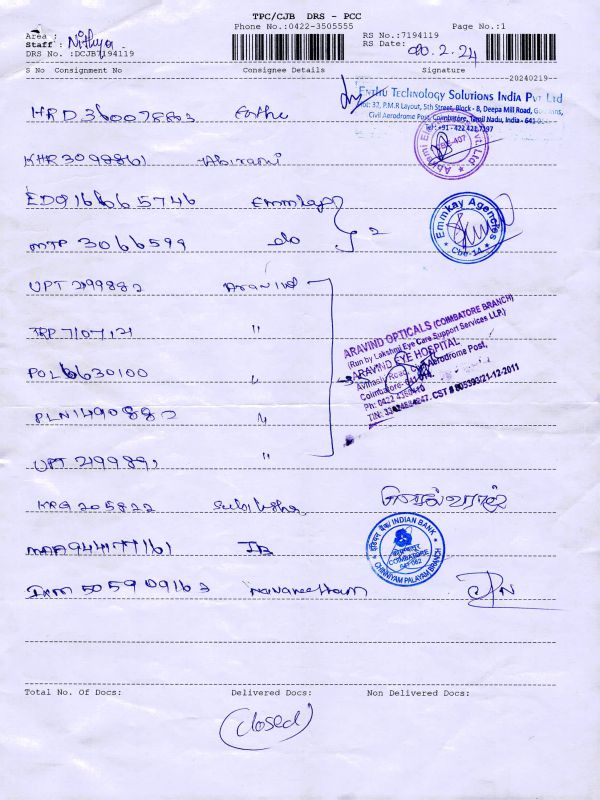 TPC/CJB DRS - PCC
Phone No.:0422-3505555
Page No.:1
Area :
Staff : Nithya
DRS No. :DCJB7194119
RS No.:7194119
RS Date: 20.2.24
S No Consignment No Consignee Details Signature
20240219
HRD 36007883 Enthu
ENTHU TECHNOLOGY SOLUTIONS INDIA PVT LTD
32, P.M.R Layout, 5th Street, Block - 8, Deepa Mill Road,
Civil Aerodrome Post, Coimbatore, Tamil Nadu, India - 641
Tel: +91 - 422 421 7197
KHR3099861 Abirami
EDQ 16665746 Emmkay
2
Emmkay Agencies
Cbe-14
MTP 3066599 do
UPT 2199882 Aravind
TRP 7107121 "
ARAVIND OPTICALS (COIMBATORE BRANCH)
(Run by Lakshmi Eye Care Support Services LLP.)
ARAVIND EYE HOSPITAL
Avinashi Road, Civil Aerodrome Post,
Coimbatore- 641 014.
Ph: 0422 4360410
POL 6630100 "
PLN 1490882 "
UPT 2199891 "
KRG 205822
செல்வராஜ்
INDIAN BANK
COIMBATORE
CHINNIYAM PALAYAM BRANCH
IB
IXM 505909163 Navaneetham
Total No. Of Docs: Delivered Docs: Non Delivered Docs:
(closed)